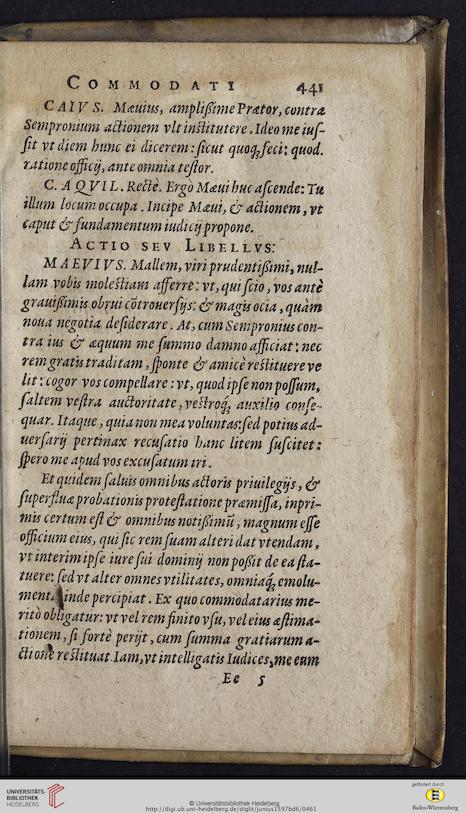 COMMODATI 441
CAIVS. Mæuius, amplißime Prætor, contra
Sempronium actionem vlt instituere. Ideo me ius-
sit vt diem hunc ei dicerem: sicut quoq; feci: quod.
ratione officij, ante omnia testor.
C. AQVIL. Rectè. Ergò Mæui huc ascende: Tu
illum locum occupa. Incipe Mæui, & actionem, vt
caput & fundamentum iudicij propone.
ACTIO SEV LIBELLVS:
MAEVIVS. Mallem, viri prudentißimi, nul-
lam vobis molestiam afferre: vt, qui scio, vos antè
grauißimis obrui cōtrouersijs: & magis ocia, quàm
noua negotia desiderare. At, cum Sempronius con-
tra ius & æquum me summo damno afficiat: nec
rem gratis traditam, sponte & amicè restituere ve
lit: cogor vos compellare: vt, quod ipse non possum,
saltem vestra auctoritate, vestroq́; auxilio conse-
quar. Itaque, quia non mea voluntas: sed potius ad-
uersarij pertinax recusatio hanc litem suscitet:
spero me apud vos excusatum iri.
Et quidem saluis omnibus actoris priuilegijs, &
superfluæ probationis protestatione præmissa, inpri-
mis certum est & omnibus notißimū, magnum esse
officium eius, qui sic rem suam alteri dat vtendam,
vt interim ipse iure sui dominij non poßit de ea sta-
tuere: sed vt alter omnes vtilitates, omniaq́; emolu-
menta inde percipiat. Ex quo commodatarius me-
ritò obligatur: vt vel rem finito vsu, vel eius æstima-
tionem, si fortè perijt, cum summa gratiarum a-
ctione restituat. Iam, vt intelligatis Iudices, me eum
Ee 5
UNIVERSITÄTS-
BIBLIOTHEK
HEIDELBERG
© Universitätsbibliothek Heidelberg
http://digi.ub.uni-heidelberg.de/diglit/junius1597bd6/0461
gefördert durch
Baden-Württemberg